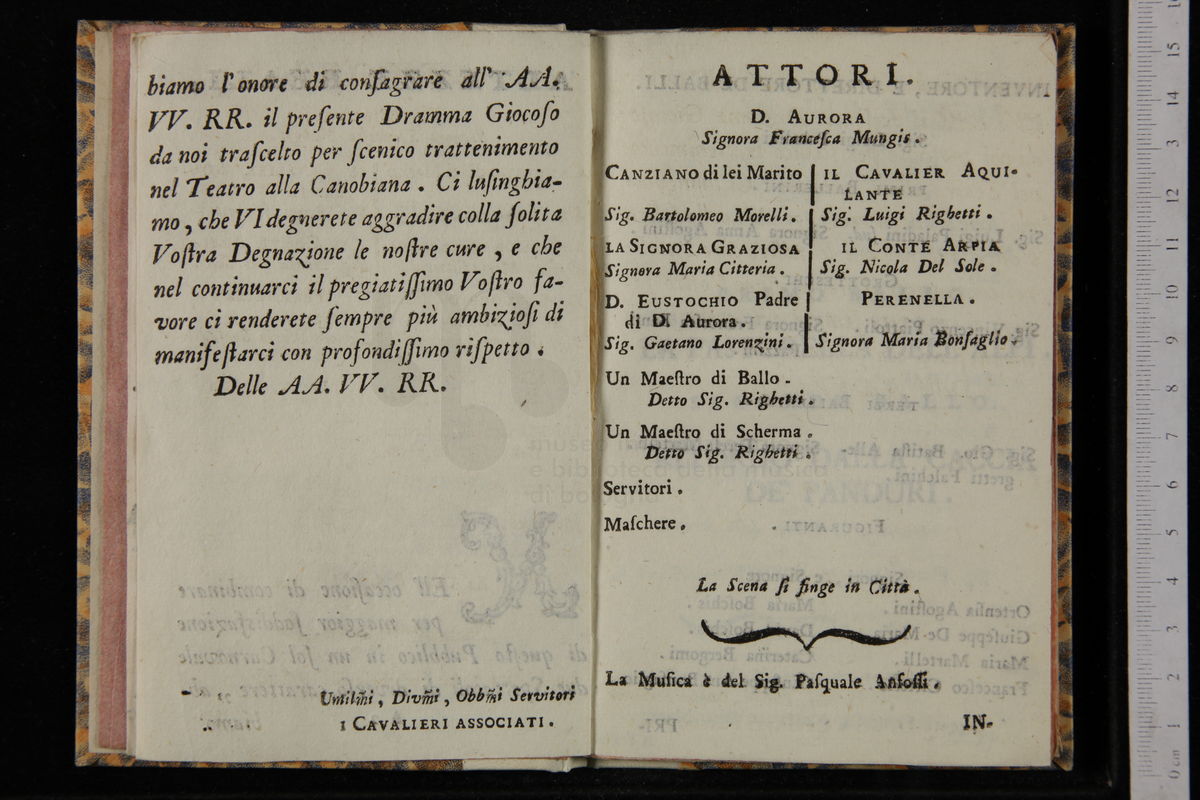 biamo l'onore di conſagrare all' AA.
VV. RR. il preſente Dramma Giocoſo
da noi traſcelto per ſcenico trattenimento
nel Teatro alla Canobiana. Ci luſinghia-
mo, che VI degnerete aggradire colla ſolita
Voſtra Degnazione le noſtre cure, e che
nel continuarci il pregiatiſſimo Voſtro fa-
vore ci renderete ſempre più ambizioſi di
manifeſtarci con profondiſſimo riſpetto.
Delle AA. VV. RR.
Umilm̃i, Divm̃i, Obbm̃i Servitori
I CAVALIERI ASSOCIATI.
ATTORI.
D. AURORA
Signora Franceſca Mungis.
CANZIANO di lei Marito
Sig. Bartolomeo Morelli.
LA SIGNORA GRAZIOSA
Signora Maria Citteria.
D. EUSTOCHIO Padre
di D. Aurora.
Sig. Gaetano Lorenzini.
IL CAVALIER AQUI-
LANTE
Sig. Luigi Righetti.
IL CONTE ARPIA
Sig. Nicola Del Sole.
PERENELLA.
Signora Maria Bonſaglio.
Un Maeſtro di Ballo.
Detto Sig. Righetti.
Un Maeſtro di Scherma.
Detto Sig. Righetti.
Servitori.
Maſchere.
La Scena ſi finge in Città.
La Muſica è del Sig. Paſquale Anfoſſi.
IN-
museo
e biblioteca della musica
di bologna